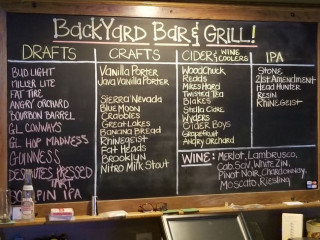 BACKYARD BAR & GRILL!
DRAFTS
BUD LIGHT
MILLER LITE
FAT TIRE
ANGRY ORCHARD
BOURBON BARREL
GL. CONWAYS
GL. HOP MADNESS
GUINNESS
PRESSED
PIN IPA
CRAFTS
Vanilla Porter
Java Vanilla Porter
Sierra Nevada
Blue Moon
Crabbies
Great Lakes
Banana Bread
Rhinegeist
Fat Heads
Brooklyn
Nitro Milk Stout
CIDER & WINE COOLERS
Woodchuck
Reads
Mikes Hard
Twisted Tea
Blakes
Stella Cidre
Wyders
Cider Boys
Grapefruit
Angry Orchard
IPA
Stone
21st Amendment
Head Hunter
Resin
Rhinegeist
WINE: Merlot, Lambrusco,
Cab. Sav, White Zin,
Pinot Noir, Chardonnay,
Moscato, Riesling